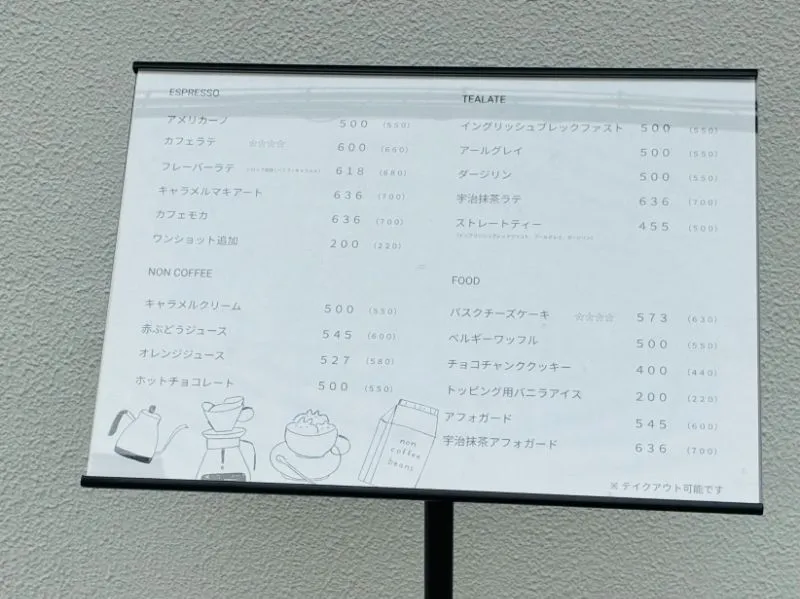 ESPRESSO
アメリカーノ 500 (550)
カフェラテ ☆☆☆☆ 600 (660)
フレーバーラテ 618 (680)
キャラメルマキアート 636 (700)
カフェモカ 636 (700)
ワンショット追加 200 (220)
NON COFFEE
キャラメルクリーム 500 (550)
赤ぶどうジュース 545 (600)
オレンジジュース 527 (580)
ホットチョコレート 500 (550)
TEALATE
イングリッシュブレックファスト 500 (550)
アールグレイ 500 (550)
ダージリン 500 (550)
宇治抹茶ラテ 636 (700)
ストレートティー 455 (500)
(イングリッシュブレックファスト、アールグレイ、ダージリン)
FOOD
バスクチーズケーキ ☆☆☆☆ 573 (630)
ベルギーワッフル 500 (550)
チョコチャンククッキー 400 (440)
トッピング用バニラアイス 200 (220)
アフォガード 545 (600)
宇治抹茶アフォガード 636 (700)
non
coffee
beans
※テイクアウト可能です